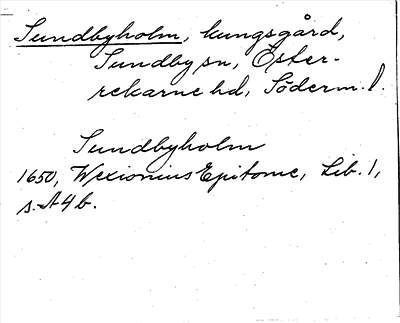 Sundbyholm, kungsgård,
Sundby sn, Öster-
rekarne hd, Söderm. l.
Sundbyholm
1650, Wexionius Epitome, Lib. 1,
s. A4b.